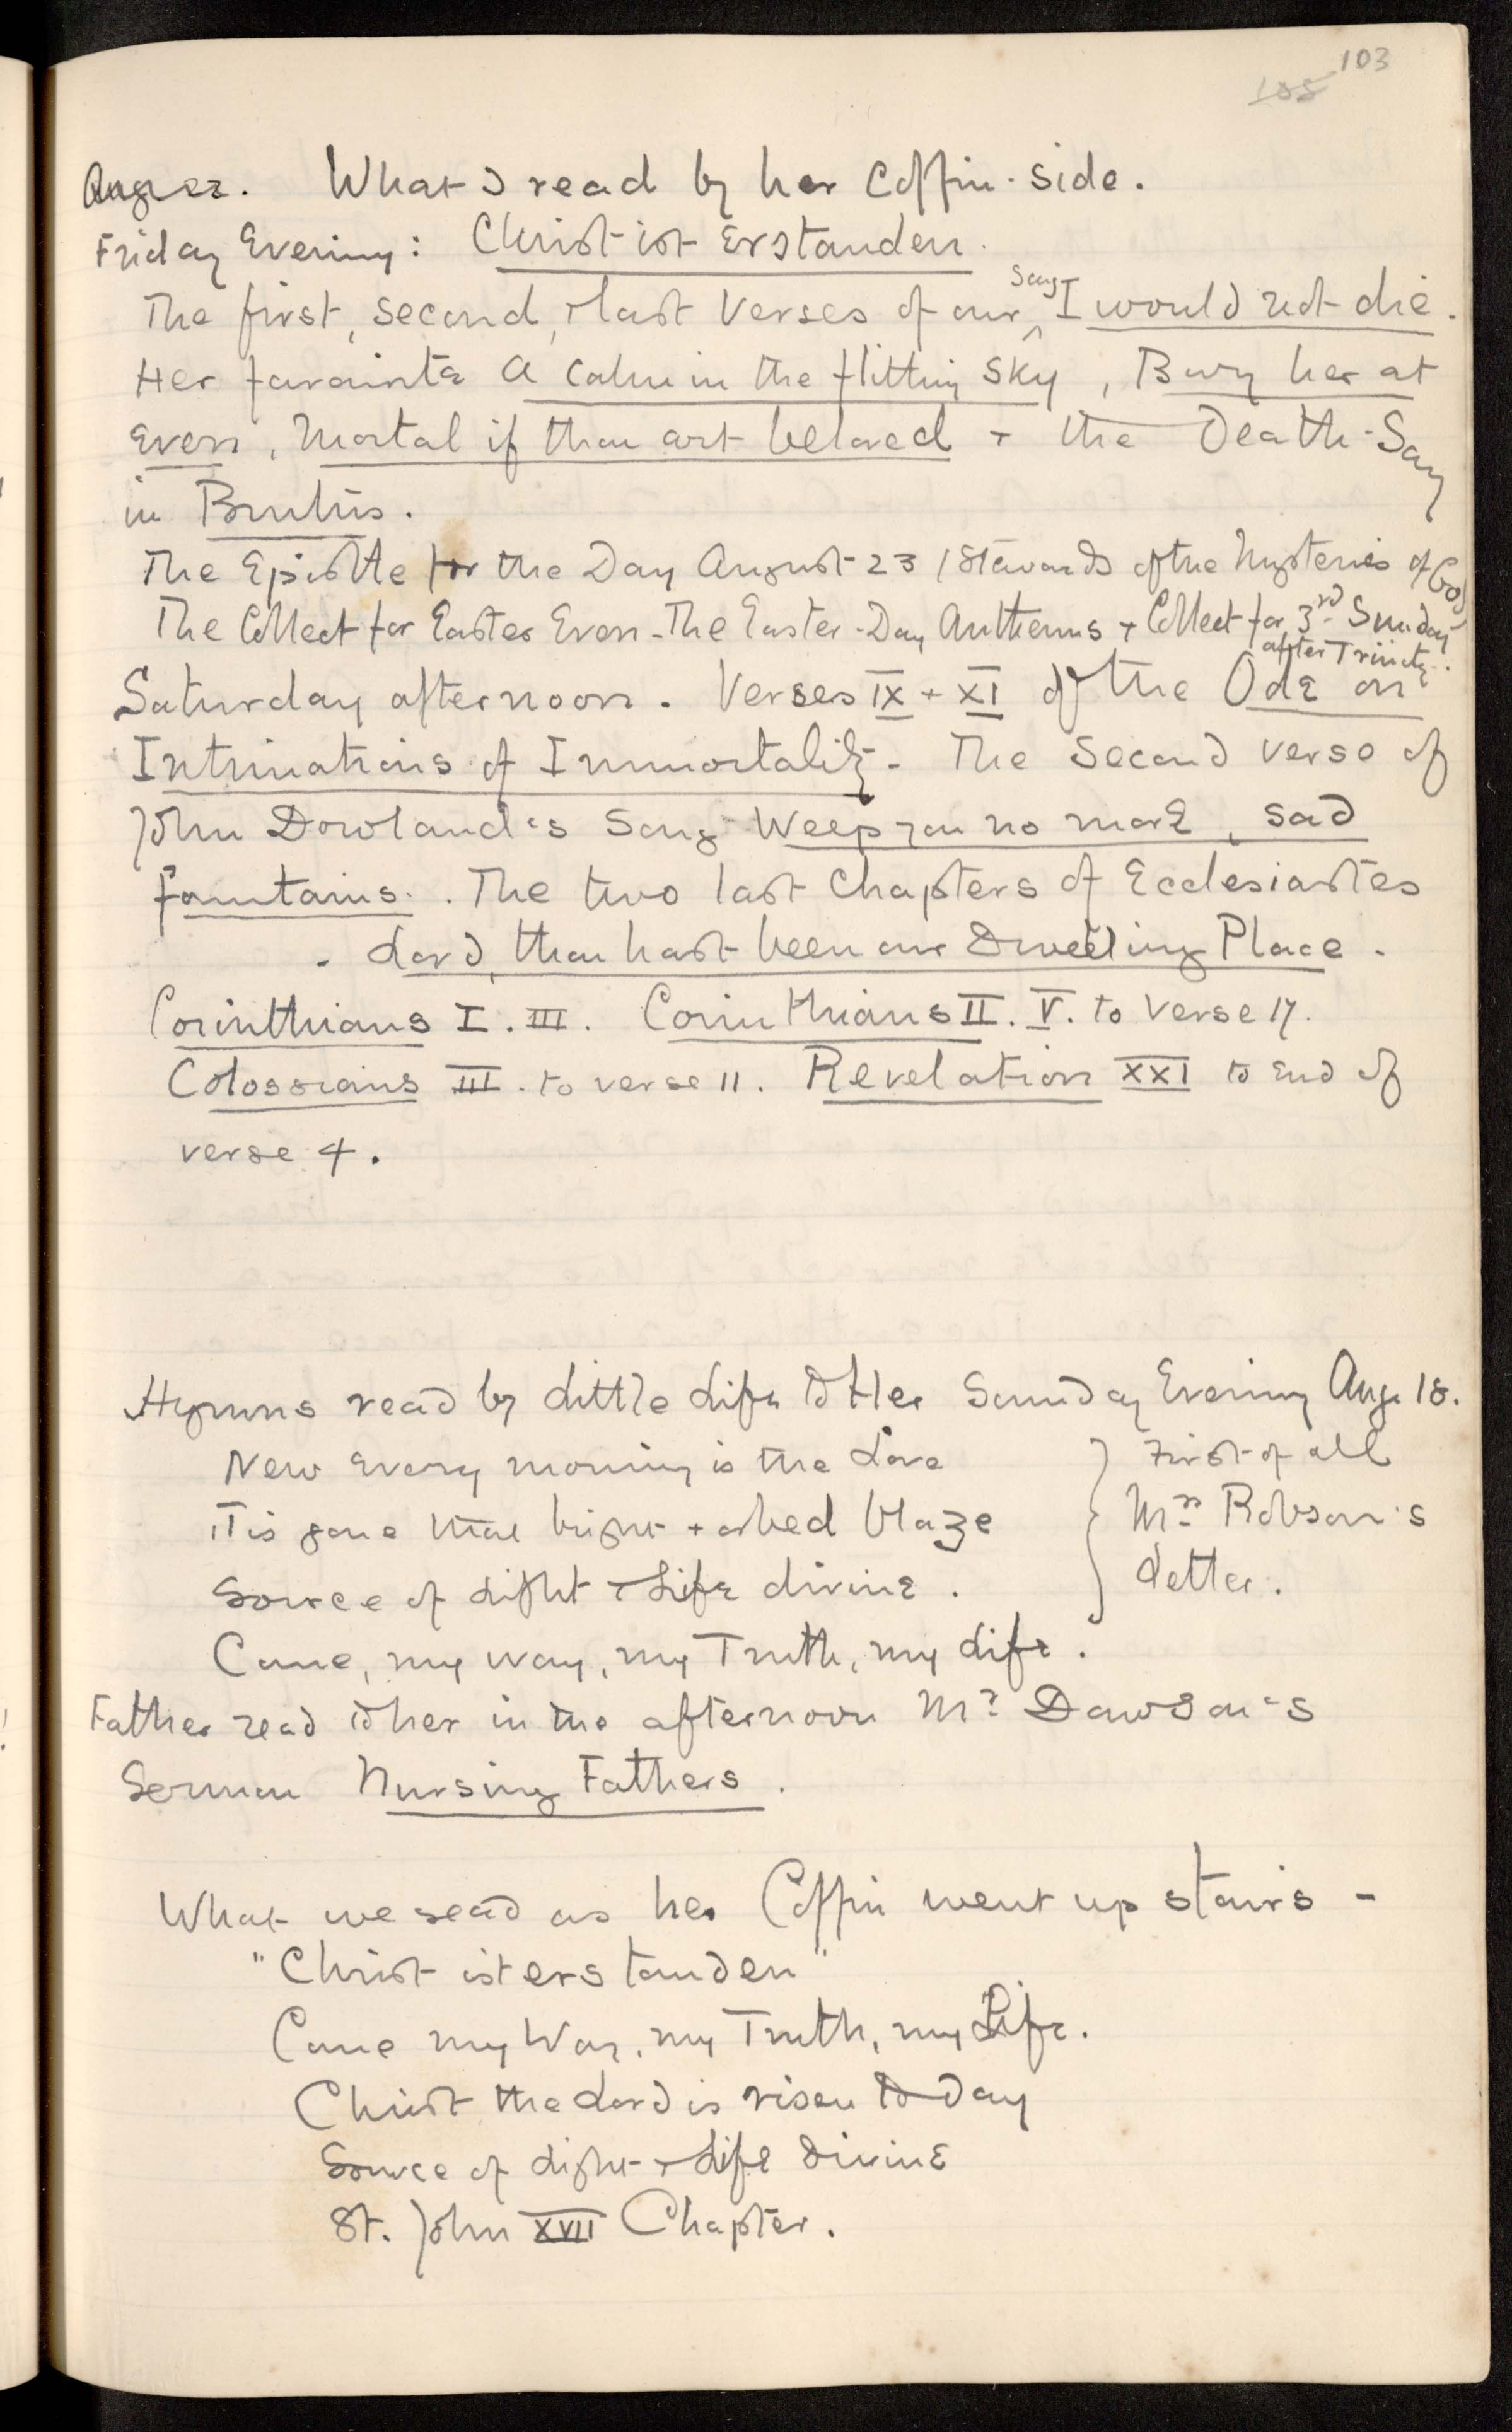 103
105
Aug 22. What I read by her Coffin-side.
Friday Evening: Christ ist Erstanden.
The first, second, + last verses of our ^Song I would not die.
Her favourite A calm in the flitting sky, Bury her at
Even, Mortal if thou art beloved + the Death-Song
in Brutus.
The Epistle for the Day August 23 / Stewards of the Mysteries of God
The Collect for Easter Even - The Easter-Day Anthems + Collect for 3rd Sunday
after Trinity.
Saturday afternoon. Verses IX + XI of the Ode on
Intimations of Immortality - The Second verse of
John Dowland's Song Weep you no more, sad
fountains. . The two last Chapters of Ecclesiastes
. Lord, thou hast been our Dwelling Place.
Corinthians I. III. Corinthians II. V. to Verse 17.
Colossians III. to verse 11. Revelation XXI to End of
verse 4.
Hymns read by Little Life to Her Sunday Evening Aug. 18.
New Every morning is the Love } First of all
'Tis gone that bright + orbed blaze } Mrs Robson's
Source of Light + Life divine. } Letter.
Come, my way, my Truth, my Life.
Father read to her in the afternoon Mr Dawson's
Sermon Nursing Fathers.
What we read as her Coffin went up stairs -
"Christ ist erstanden"
Come my Way, my Truth, my Life.
Christ the Lord is risen to-day
Source of Light + Life Divine
St. John XVII Chapter.